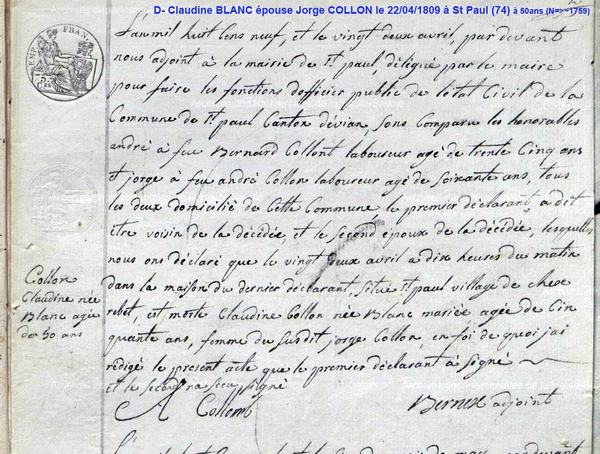 D- Claudine BLANC épouse Jorge COLLON le 22/04/1809 à St Paul (74) à 50ans (N=>~1759)
L'an mil huit Cens neuf, et le vingt deux avril, par devant
nous adjoint à la mairie de St paul, délégué par le maire
pour faire les fonctions d'officier public de l'état Civil de la
Commune de St paul Canton d'évian, sons Comparu les honorables
andré à feu Bernard Collont laboureur agé de trente Cinq ans
et jorge à feu andré Collon laboureur agé de soixante ans, tous
les deux domicilié de Cette Commune, le premier déclarant, a dit
être voisin de la décédée, et le second époux de la décédée, lesquelles
nous ons déclaré que le vingt deux avril a dix heures du matin
dans la maison du dernier déclarant, situé St paul village de chex
rebet, est morte Claudine Collon née Blanc mariée agée de Cin
quante ans, femme du susdit jorge Collon, en foi de quoi j'ai
rédigé le present acte que le premier déclarant à signé
et le second na seu signé
A Collomb
Bernex adjoint
Collon
Claudine née
Blanc agée
de 50 ans
EMP. FRAN.